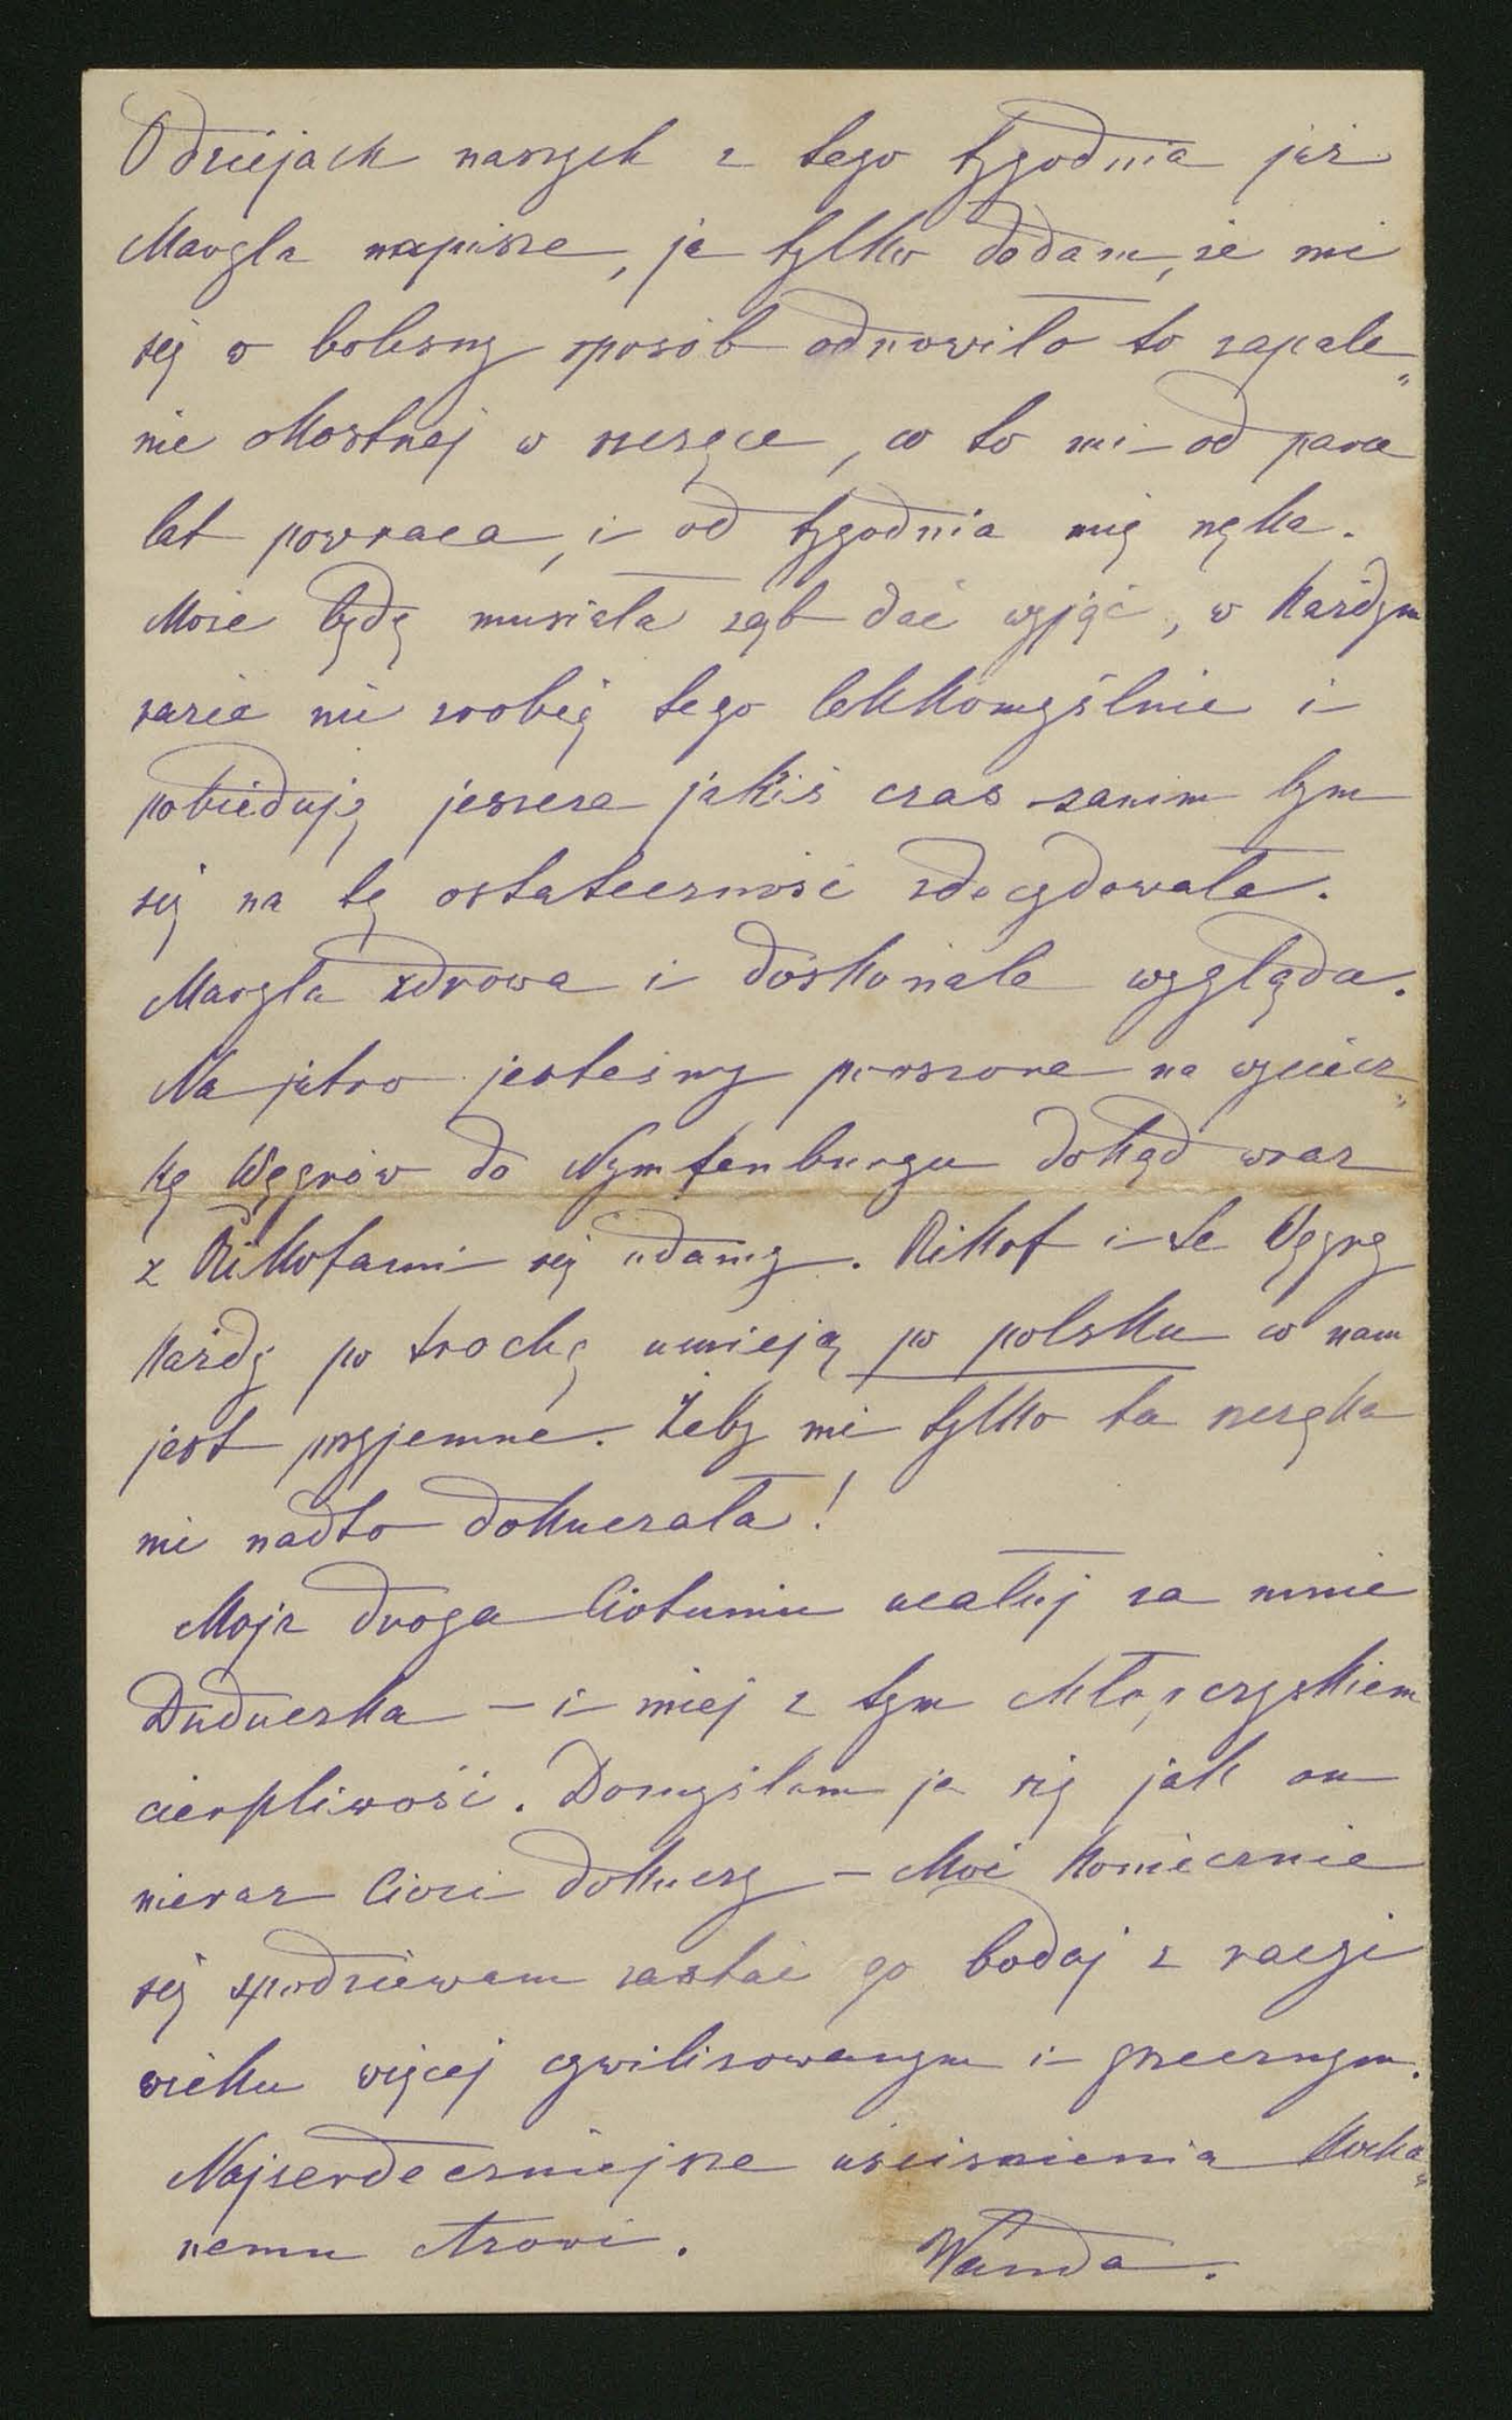 O dziejach naszych z tego tygodnia już
Maryla napisze, ja tylko dodam, że mi
się w bolesny sposób odnowiło to zapale„
nie okostnej w szczęce, co to mi od paru
lat powraca, i od tygodnia mię nęka.
Może będę musiała ząb dać wyjąć, w każdym
razie nie zrobię tego lekkomyślnie i
pobieduję jeszcze jakiś czas zanim bym
się na tę ostateczność zdecydowała.
Maryla zdrowa i doskonale wygląda.
Na jutro jesteśmy proszone na wyciecz„
kę Węgrów do Nymfenburgu dokąd wraz
z Rikofami się udamy. Rikof i te Węgry
każdy po trochę umieją po polsku co nam
jest przyjemne. Żeby mi tylko ta szczęka
nie nadto dokuczała!
Moja droga Ciotuniu ucałuj za mnie
Duduczka – i miej z tym chłopczyskiem
cierpliwość. Domyślam ja się jak on
nieraz Cioci dokuczy – choć koniecznie
się spodziewam zastać go bodaj z racyi
wieku więcej cywilizowanym i grzecznym.
Najserdeczniejsze uściśnienia kocha„
nemu
Wanda.